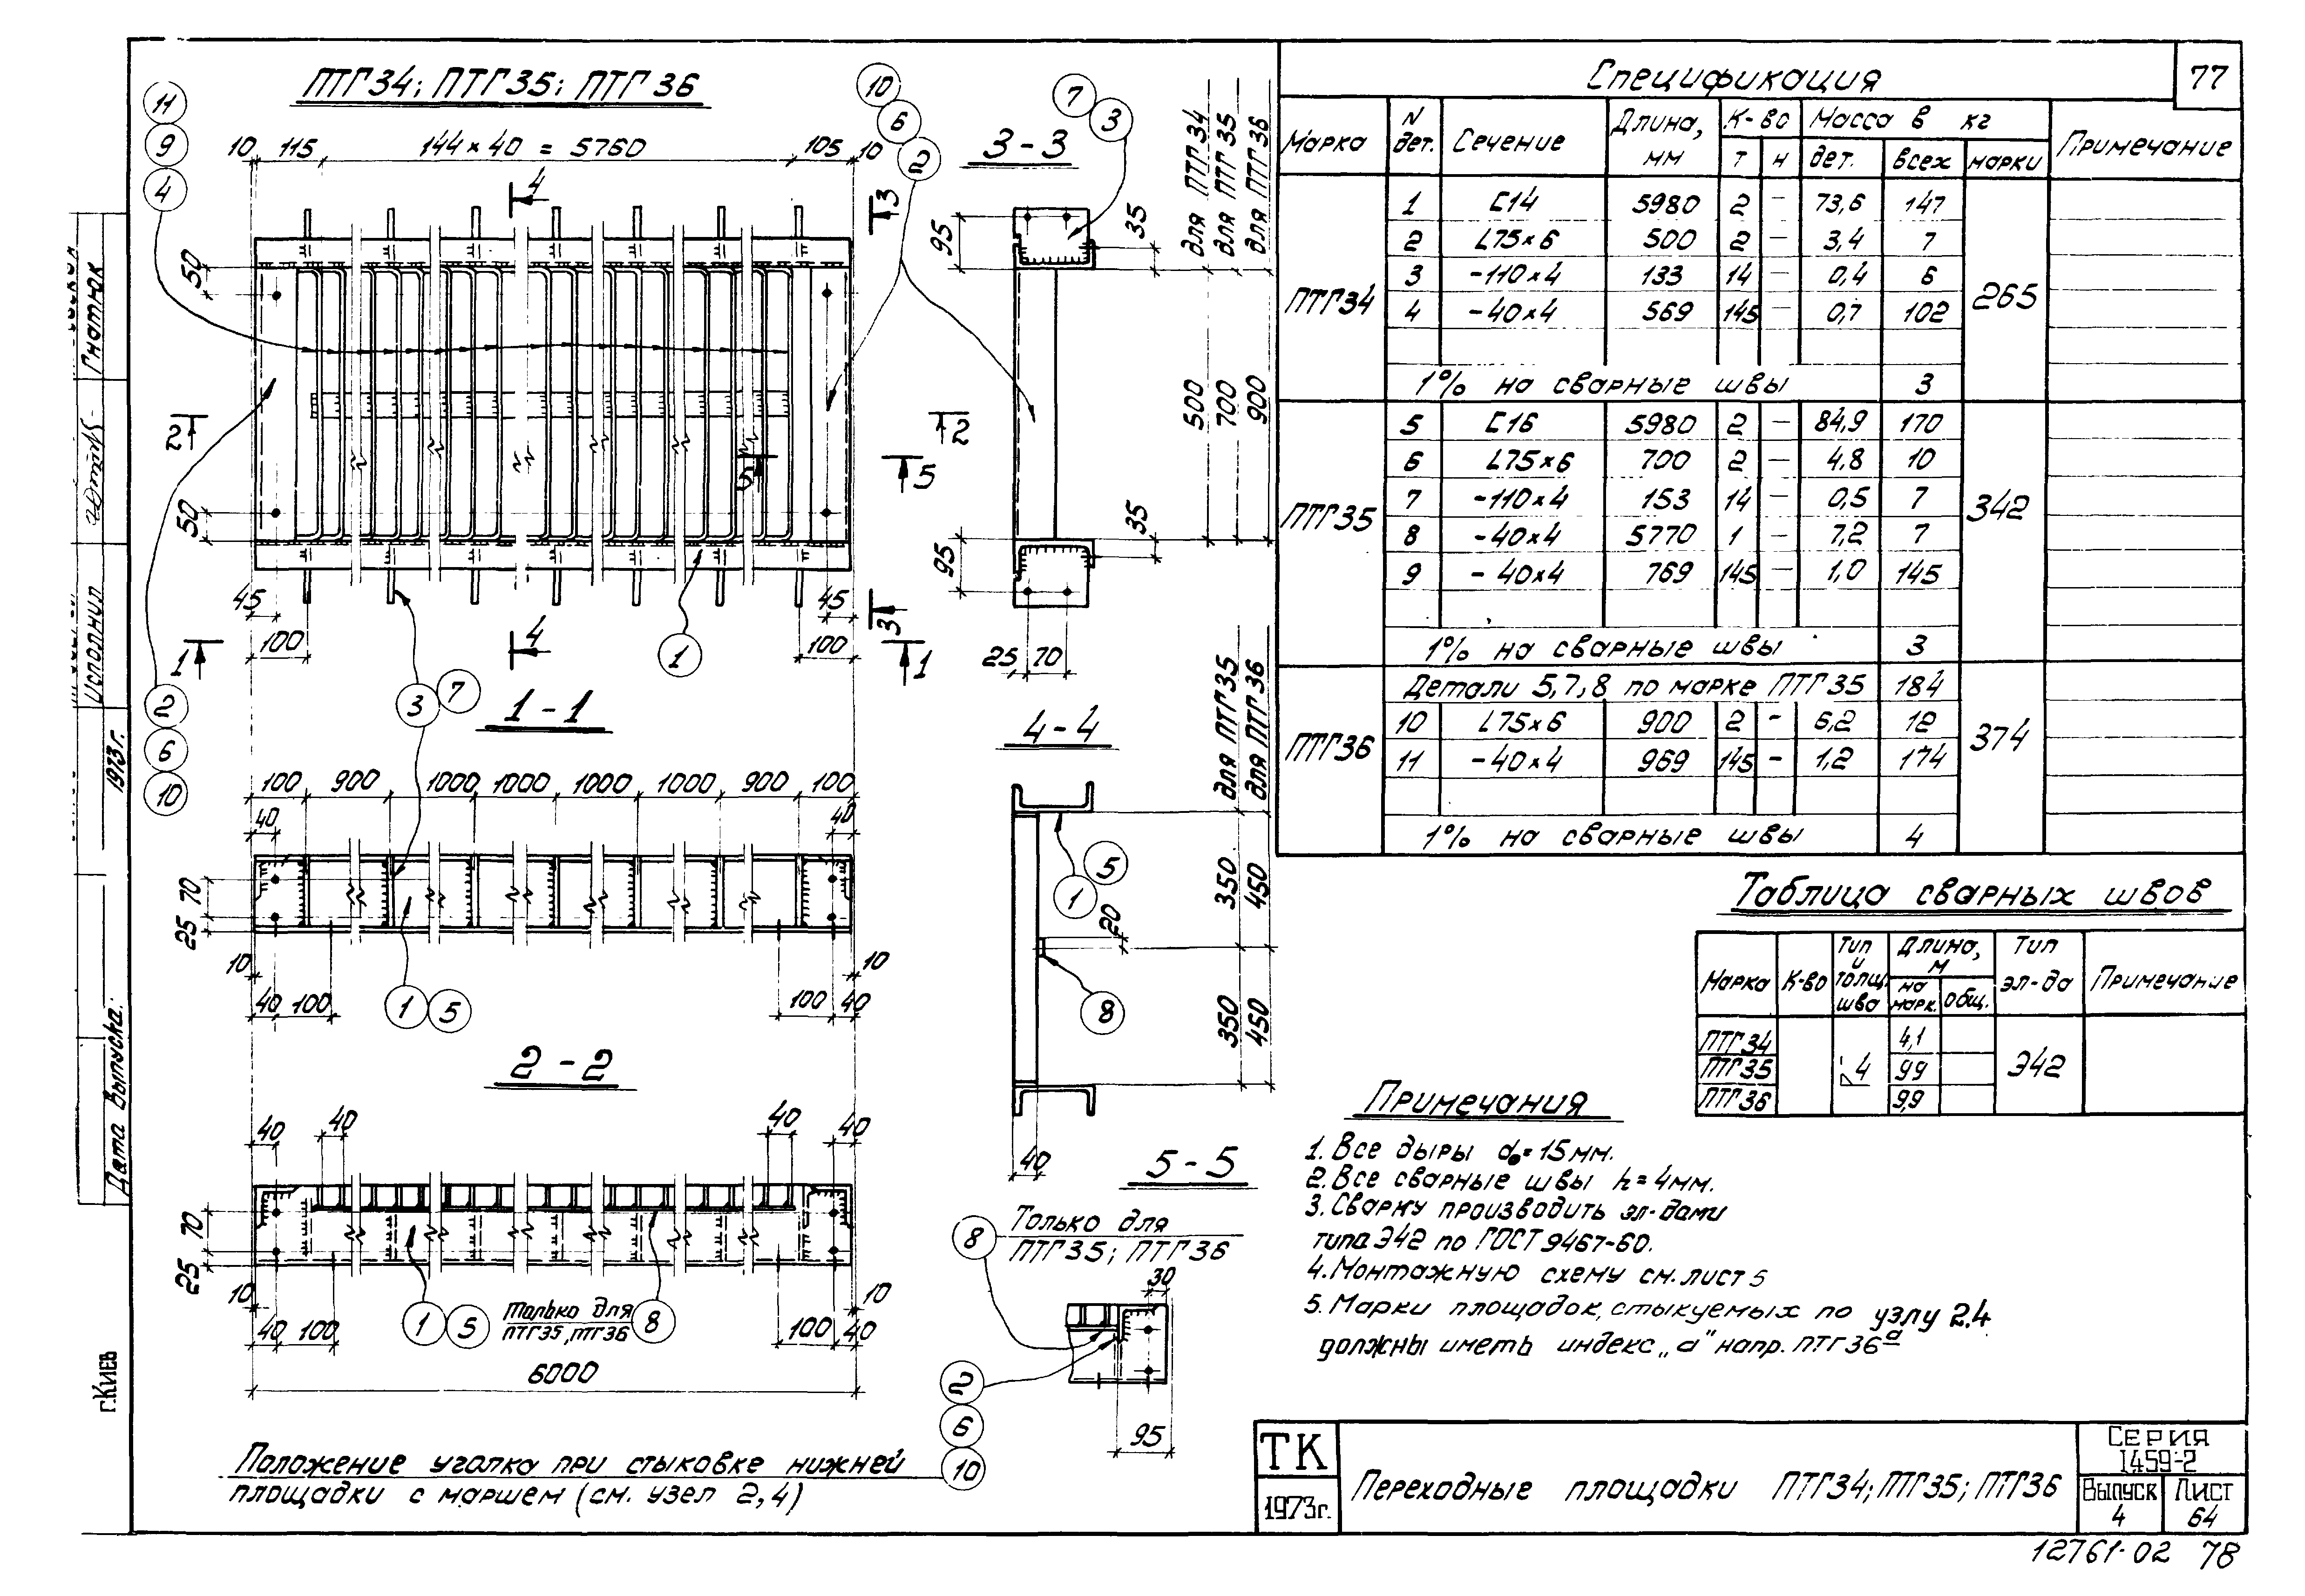 ПТГ34; ПТГ35; ПТГ36
11
9
4
10 115 144×40 = 5760 105 10
10
6
2
7
3
3-3
4
3
50
2
5
50
45
100
1
4
3
1
95
35
25 70
для ПТГ34
для ПТГ35
для ПТГ36
500
700
900
2
6
10
3
7
1-1
100 900 1000 1000 1000 1000 900 100
40 40
70
25
10 10
40 100 100 40
1
5
2-2
40 40 40 40
70
25
10 10
40 100 100 40
1
5
Только для
ПТГ35, ПТГ36
8
6000
4-4
для ПТГ35
для ПТГ36
5
1
20
350
450
8
350
450
40
5-5
Только для
ПТГ35; ПТГ36
8
30
2
6
10
95
Положение уголка при стыковке нижней
площадки с маршем (см. узел 2,4)
Спецификация
77
Марка N дет. Сечение Длина, мм К-во Масса в кг Примечание
т н дет. всех марки
ПТГ34 265
1 С14 5980 2 – 73,6 147
2 L75×6 500 2 – 3,4 7
3 -110×4 133 14 – 0,4 6
4 -40×4 569 145 – 0,7 102
1% на сварные швы 3
ПТГ35 342
5 С16 5980 2 – 84,9 170
6 L75×6 700 2 – 4,8 10
7 -110×4 153 14 – 0,5 7
8 -40×4 5770 1 – 7,2 7
9 -40×4 769 145 – 1,0 145
1% на сварные швы 3
ПТГ36 374
Детали 5,7,8 по марке ПТГ35 184
10 L75×6 900 2 – 6,2 12
11 -40×4 969 145 – 1,2 174
1% на сварные швы 4
Таблица сварных швов
Марка К-во Тип и толщ. шва Длина, м Тип эл-да Примечание
на марк. общ.
ПТГ34 4,1
ПТГ35 4 99 Э42
ПТГ36 9,9
Примечания
1. Все дыры d₀=15мм.
2. Все сварные швы h=4мм.
3. Сварку производить эл-дами
типа Э42 по ГОСТ 9467-60.
4. Монтажную схему см. лист 5
5. Марки площадок, стыкуемых по узлу 2.4
должны иметь индекс „а" напр. ПТГ36ª
ТК
1973г.
Переходные площадки ПТГ34; ПТГ35; ПТГ36
Серия
1459-2
Выпуск
4
Лист
64
12761-02 78
Гнатюк
Исполнил
1973г.
Дата выпуска:
г.Киев